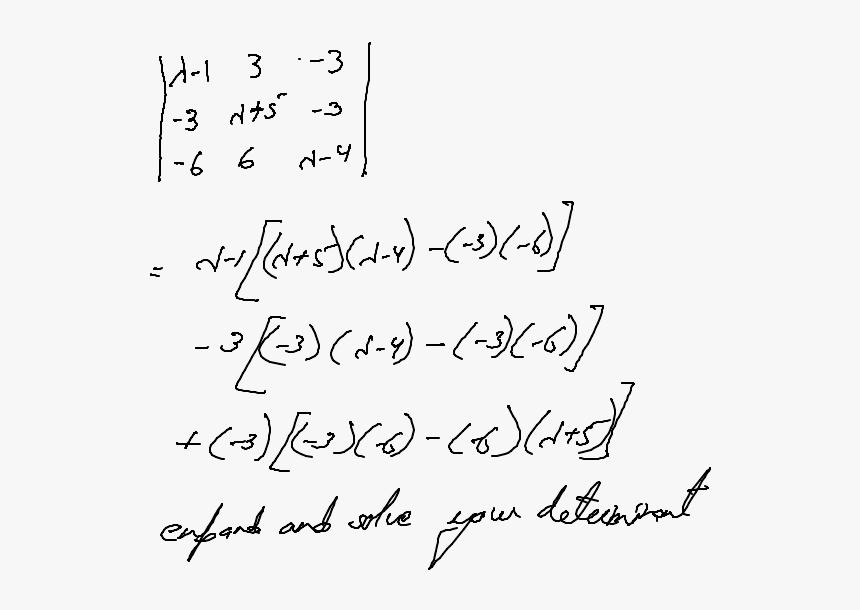 |λ-1 3 -3|
|-3 λ+5 -3|
|-6 6 λ-4|
= λ-1[(λ+5)(λ-4) -(-3)(-6)]
- 3[(-3)(λ-4) - (-3)(-6)]
+ (-3)[(-3)(-6) - (-6)(λ+5)]
expand and solve your determinant